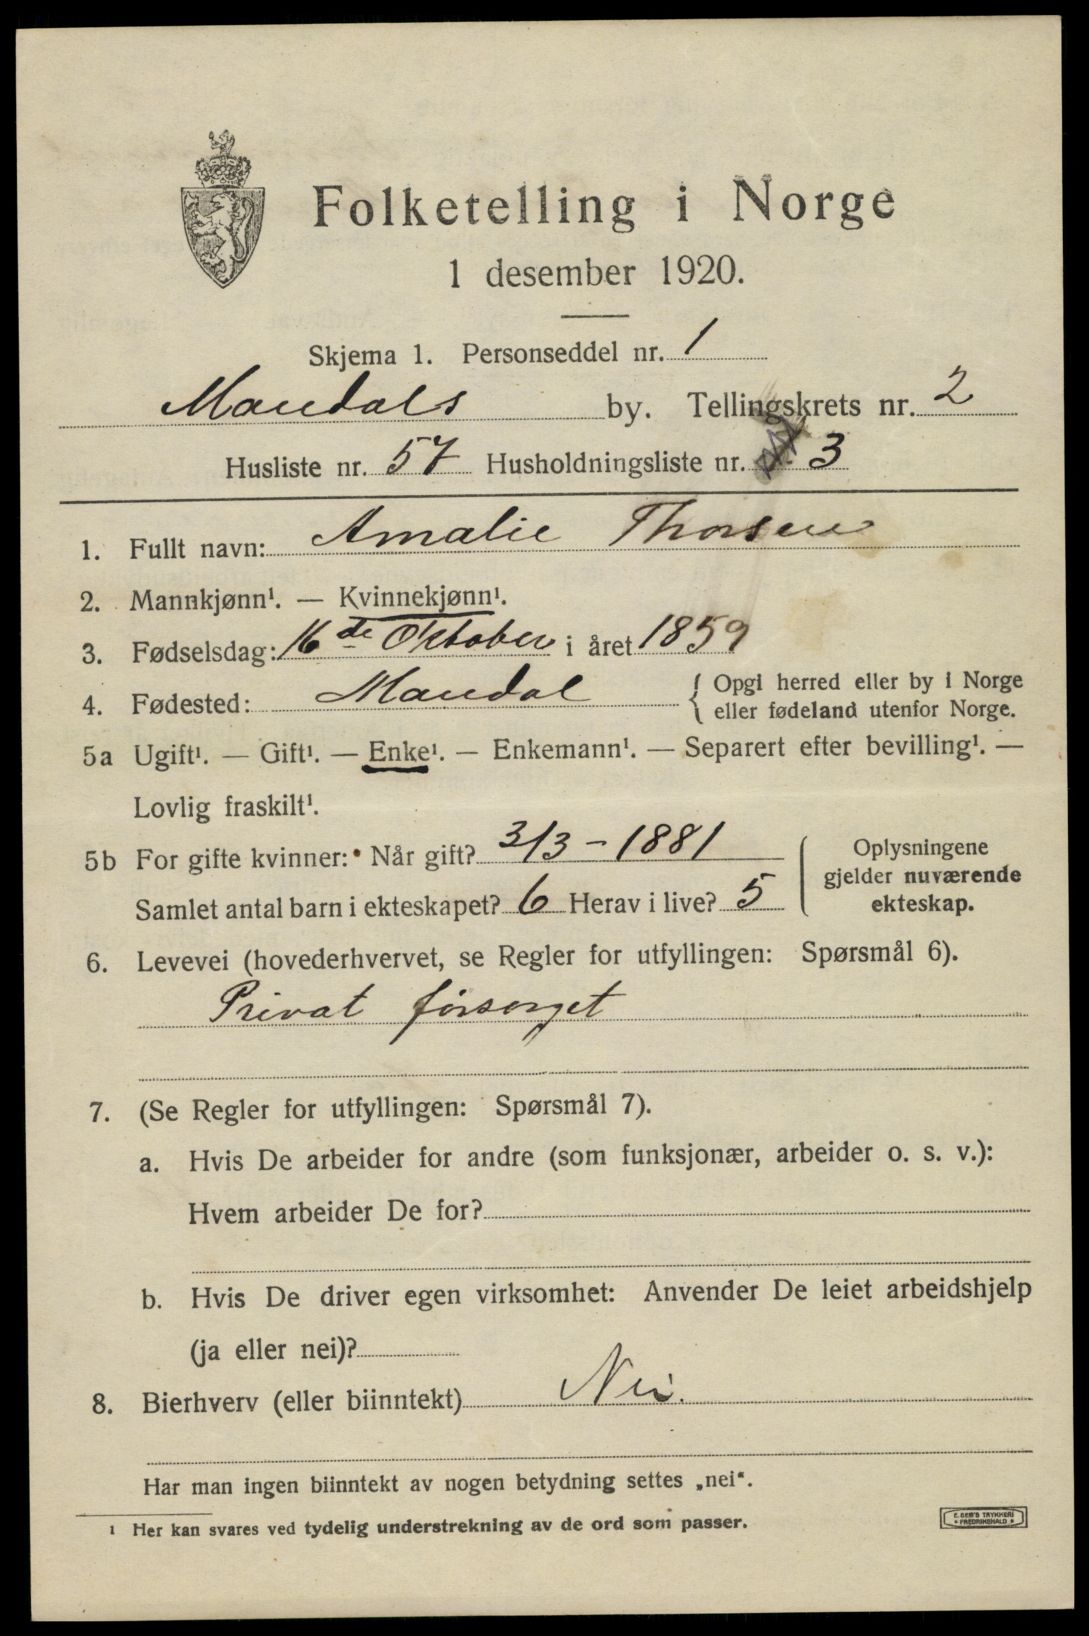 Folketelling i Norge
1 desember 1920.
Skjema 1. Personseddel nr. 1
Mandals by. Tellingskrets nr. 2
Husliste nr. 57 Husholdningsliste nr. 3
1. Fullt navn: Amalie Thorsen
2. Mannkjønn¹. — Kvinnekjønn¹.
3. Fødselsdag: 16de Oktober i året 1859
4. Fødested: Mandal { Opgi herred eller by i Norge
eller fødeland utenfor Norge.
5a Ugift¹. — Gift¹. — Enke¹. — Enkemann¹. — Separert efter bevilling¹. —
Lovlig fraskilt¹.
5b For gifte kvinner: Når gift? 3/3 - 1881
Samlet antal barn i ekteskapet? 6 Herav i live? 5
Oplysningene
gjelder nuværende
ekteskap.
6. Levevei (hovederhvervet, se Regler for utfyllingen: Spørsmål 6).
Privat forsørget
7. (Se Regler for utfyllingen: Spørsmål 7).
a. Hvis De arbeider for andre (som funksjonær, arbeider o. s. v.):
Hvem arbeider De for?
b. Hvis De driver egen virksomhet: Anvender De leiet arbeidshjelp
(ja eller nei)?
8. Bierhverv (eller biinntekt) Nei.
Har man ingen biinntekt av nogen betydning settes „nei“.
¹ Her kan svares ved tydelig understrekning av de ord som passer.
E. SEM'S TRYKKERI
* FREDRIKSHALD *